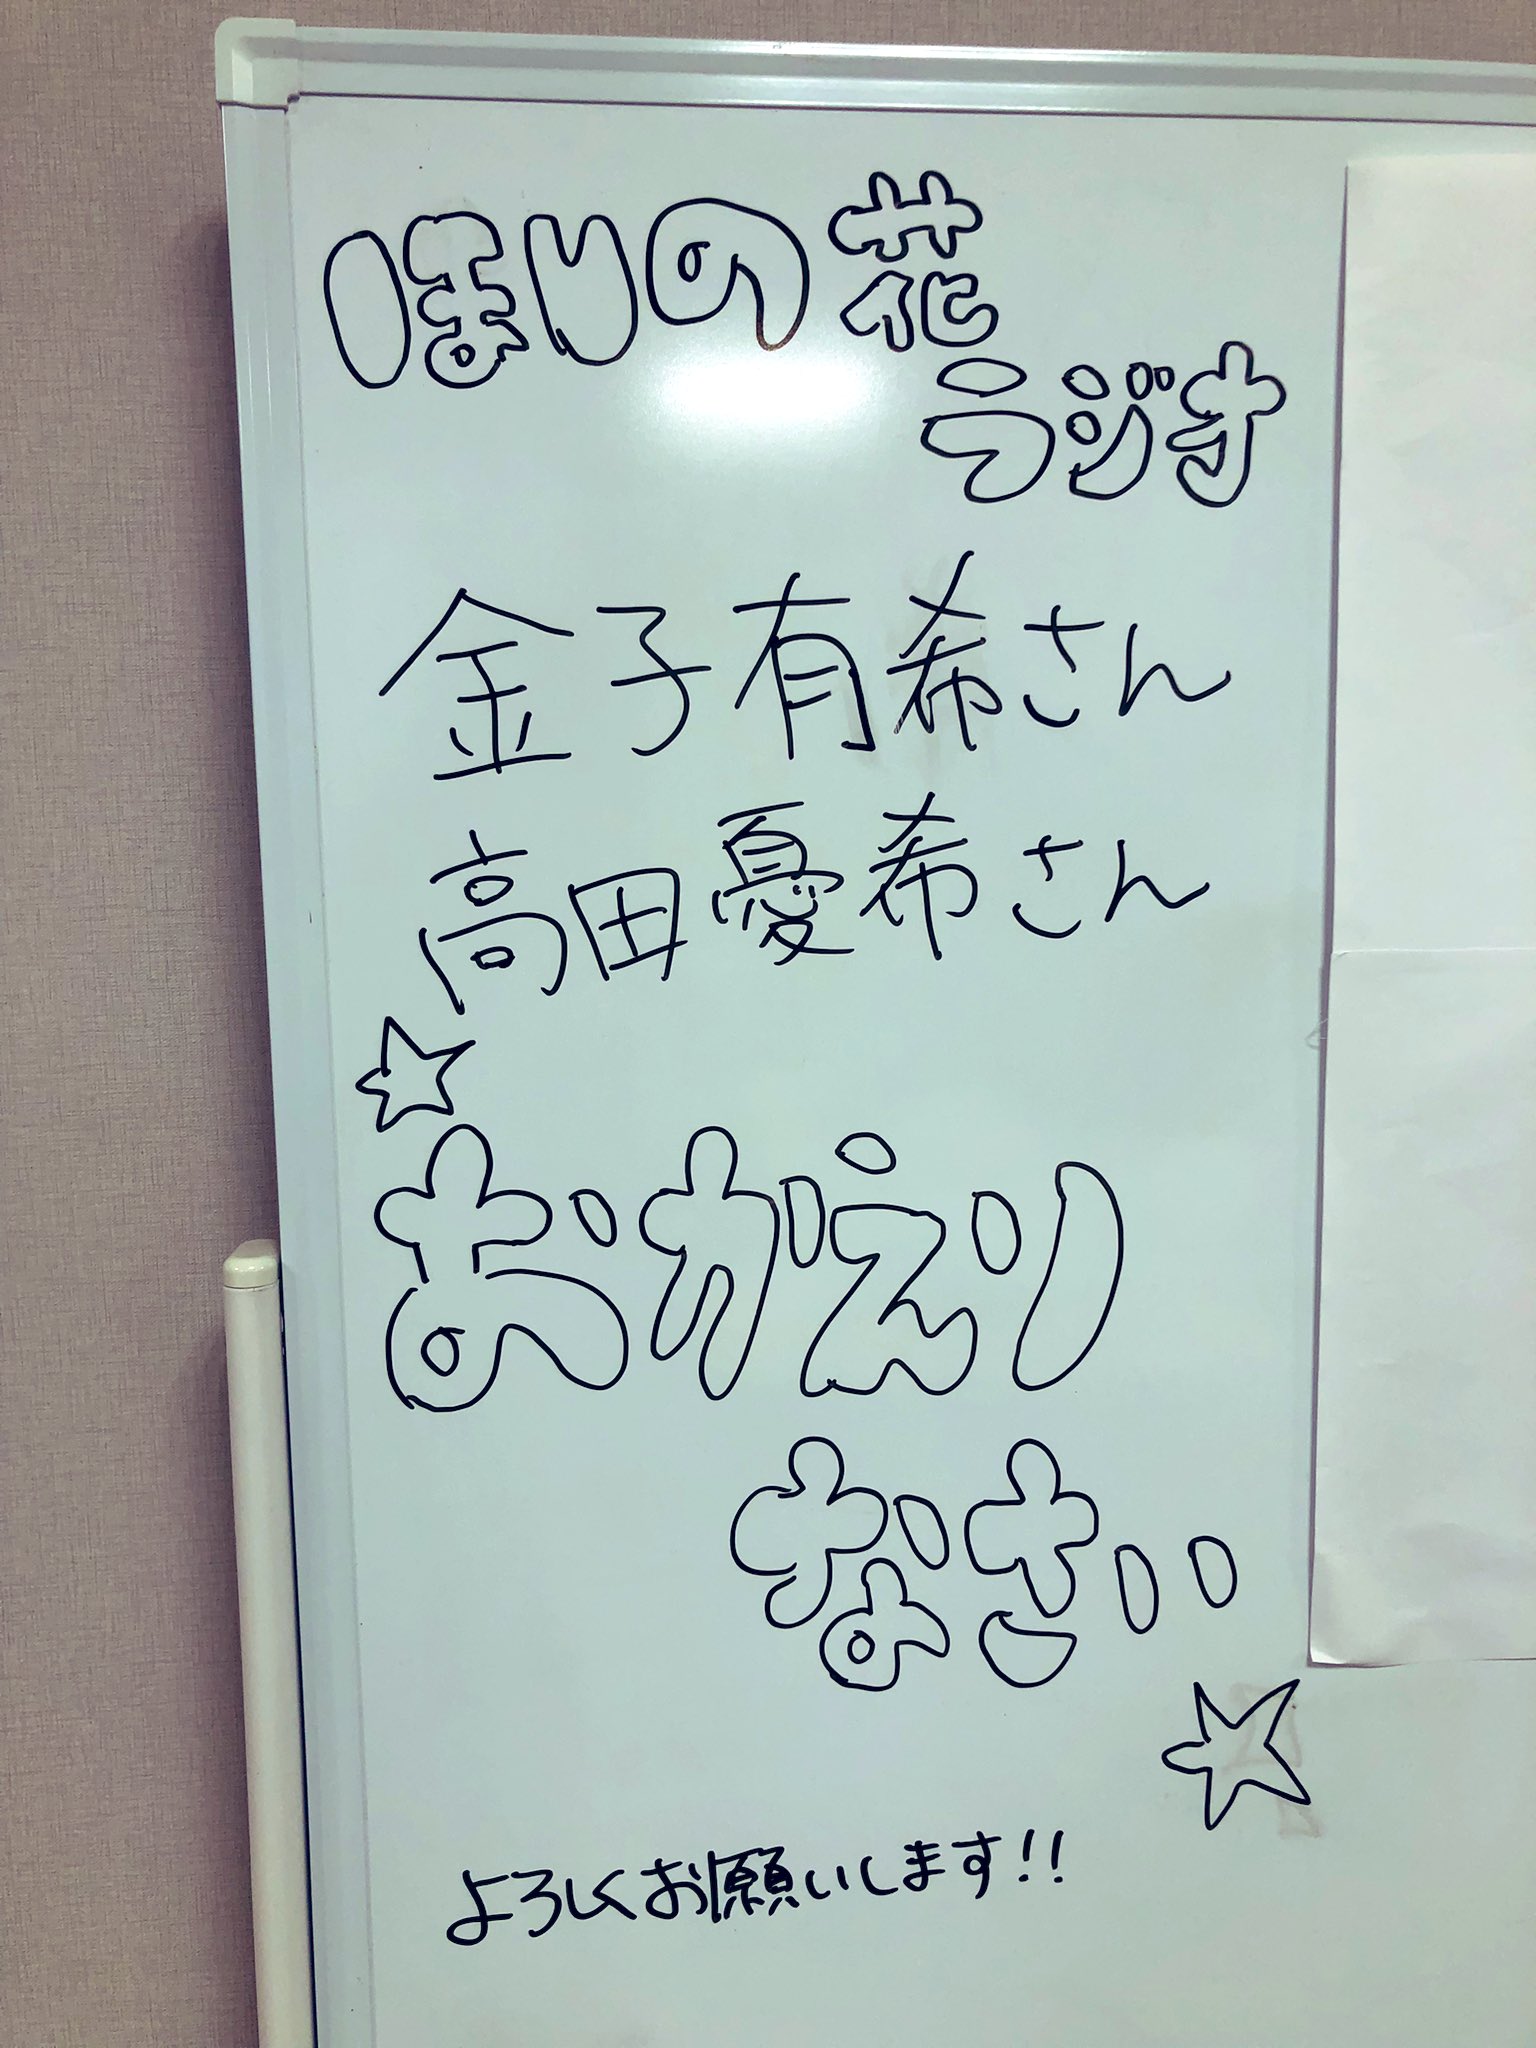 ほりの花
ラジオ
金子有希さん
高田憂希さん
☆
おかえり
なさい
☆
よろしくお願いします!!